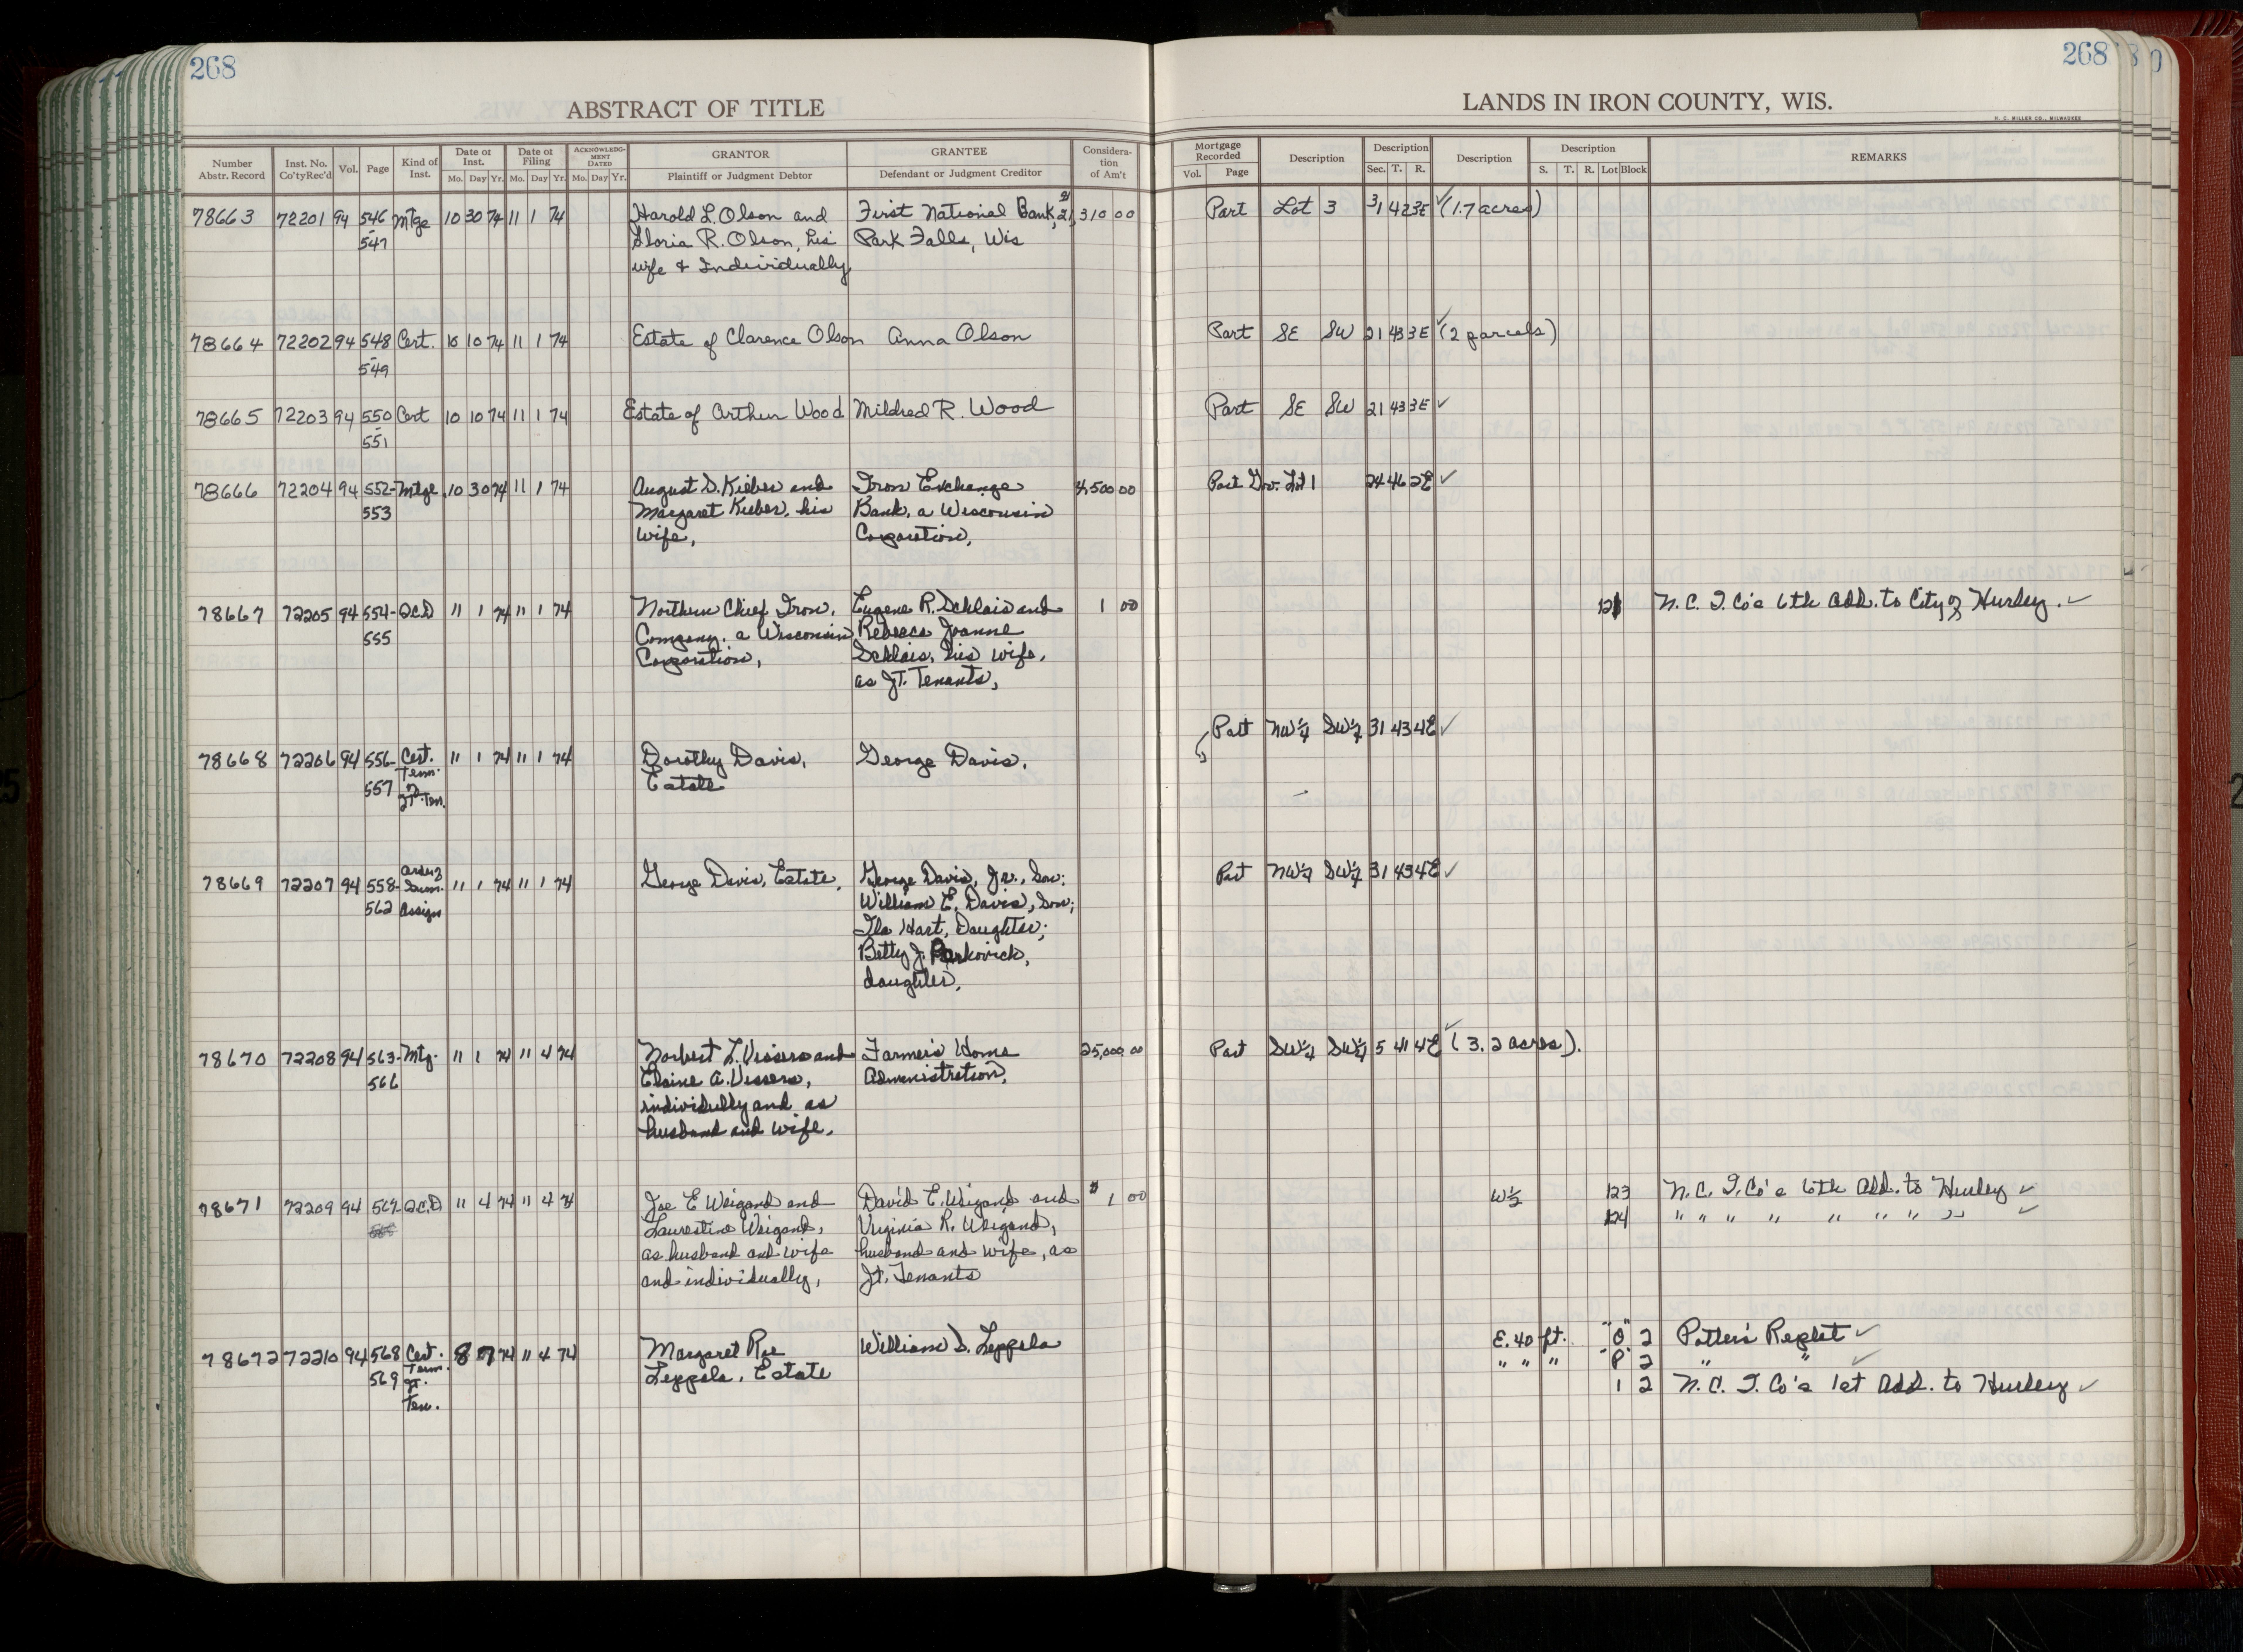 268
268
ABSTRACT OF TITLE
LANDS IN IRON COUNTY, WIS.
H. C. MILLER CO., MILWAUKEE
Number Abstr. Record | Inst. No. Co'ty Rec'd | Vol. | Page | Kind of Inst. | Date of Inst. Mo. Day Yr. | Date of Filing Mo. Day Yr. | ACKNOWLEDGMENT DATED Mo. Day Yr. | GRANTOR Plaintiff or Judgment Debtor | GRANTEE Defendant or Judgment Creditor | Consideration of Am't | Mortgage Recorded Vol. Page | Description | Description Sec. T. R. | Description | Description S. T. R. Lot Block | REMARKS
78663 72201 94 546 Mtge 10 30 74 11 1 74 Harold L. Olson and First National Bank, 21,310 00 Part Lot 3 31 42 3E ✓ (1.7 acres)
- 547 Gloria R. Olson, his Park Falls, Wis
wife & Individually
78664 72202 94 548 Cert. 10 10 74 11 1 74 Estate of Clarence Olson Anna Olson Part SE SW 21 43 3E ✓ (2 parcels)
- 549
78665 72203 94 550 Cert 10 10 74 11 1 74 Estate of Arthur Wood Mildred R. Wood Part SE SW 21 43 3E ✓
- 551
78666 72204 94 552- Mtge 10 30 74 11 1 74 August D. Kieber and Iron Exchange 4,500 00 Part Gov. Lot 1 24 46 2E ✓
553 Margaret Kieber, his Bank, a Wisconsin
wife, Corporation,
78667 72205 94 554- Q.C.D 11 1 74 11 1 74 Northern Chief Iron, Eugene R. Schlais and 1 00 121 N. C. I. Co's 6th Add. to City of Hurley. ✓
555 Company, a Wisconsin Rebecca Joanne
Corporation, Schlais, his wife,
as Jt. Tenants,
Part NW¼ SW¼ 31 43 4E ✓
78668 72206 94 556- Cert. 11 1 74 11 1 74 Dorothy Davis, George Davis,
557 Term. of Jt. Ten. Estate
78669 72207 94 558- Order of Summ. 11 1 74 11 1 74 George Davis, Estate, George Davis, Jr., Son; Part NW¼ SW¼ 31 43 4E ✓
562 Assign William E. Davis, Son;
Ila Hart, Daughter;
Betty J. Perkovich,
daughter,
78670 72208 94 563- Mtg. 11 1 74 11 4 74 Norbert L. Vissers and Farmer's Home 25,000 00 Part SW¼ SW¼ 5 41 4E ✓ (3.2 acres).
566 Elaine A. Vissers, Administration,
individully and as
husband and wife.
78671 72209 94 567- Q.C.D 11 4 74 11 4 74 Joe E Weigand and David E. Weigand and $ 1 00 W½ 123 N. C. I. Co's 6th Add. to Hurley ✓
Laurestine Weigand, Virginia R. Weigand, 124 " " " " " " " " ✓
as husband and wife husband and wife, as
and individually, Jt. Tenants
78672 72210 94 568 Cert. 8 7 74 11 4 74 Margaret Rae William D. Leppala E. 40 ft. "O" 2 Potter's Replat ✓
569 Term. Jt. Ten. Leppala, Estate " " " "P" 2 " " ✓
1 2 N. C. I. Co's 1st Add. to Hurley ✓